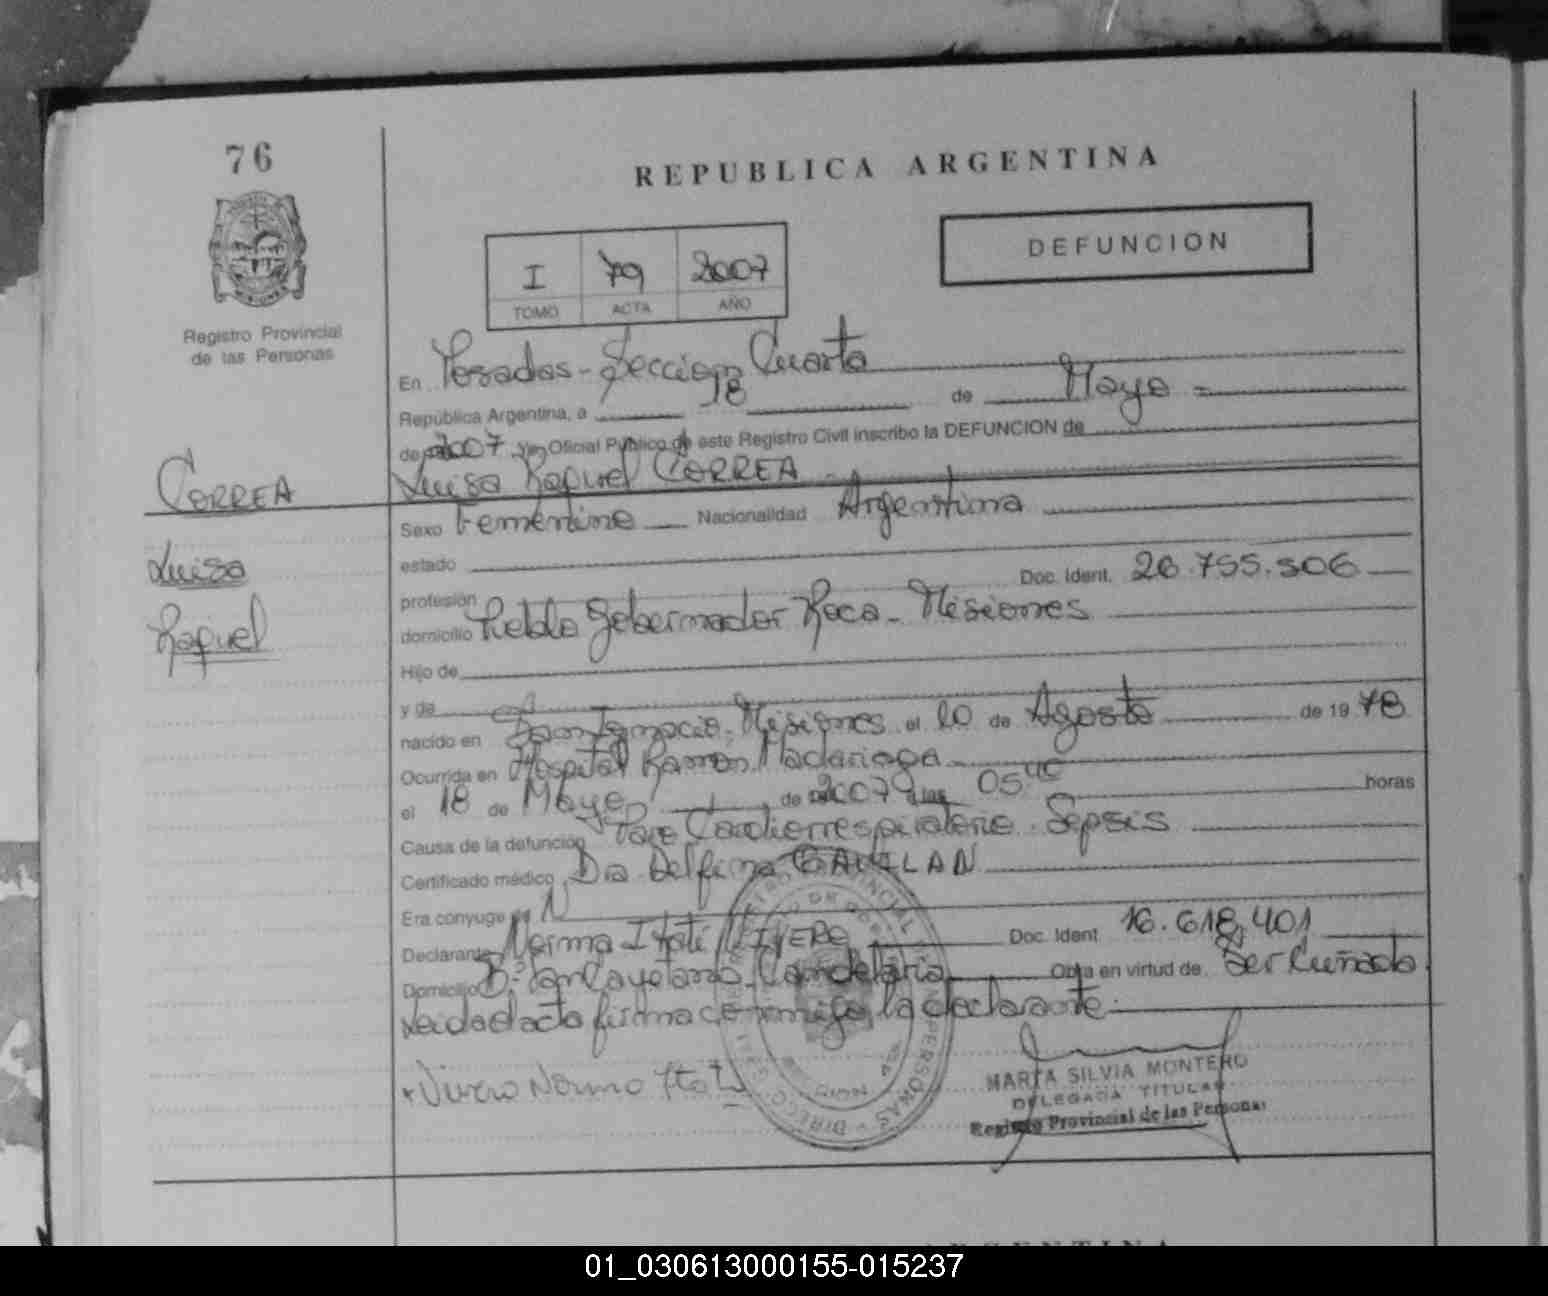 76
REPUBLICA ARGENTINA
DEFUNCION
I 79 2007
TOMO ACTA AÑO
Registro Provincial
de las Personas
En Posadas - Seccion Cuarta
República Argentina, a 18 de Mayo =
de 2007 Yo, Oficial Público de este Registro Civil inscribo la DEFUNCION de
CORREA
Luisa Raquel CORREA
Sexo Femenino Nacionalidad Argentina
Luisa
Raquel
estado
profesión Doc. Ident. 26.755.506
domicilio Pueblo Gobernador Roca - Misiones
Hijo de
y de
nacido en San Ignacio, Misiones el 20 de Agosto de 1978
Ocurrida en Hospital Ramon Madariaga
el 18 de Mayo de 2007 a las 05 40 horas
Causa de la defunción Paro Cardiorrespiratorio. Sepsis
Certificado médico Dra Delfina GAVILAN
Era conyuge de N
Declarante Norma Itatí VIVERO Doc. Ident 16.618.401
Domicilio B° San Cayetano - Candelaria Obra en virtud de Ser Cuñada
Leida el acta firma conmigo la declarante
Vivero Norma Itatí
MARTA SILVIA MONTERO
DELEGADA TITULAR
Registro Provincial de las Personas
01_030613000155-015237